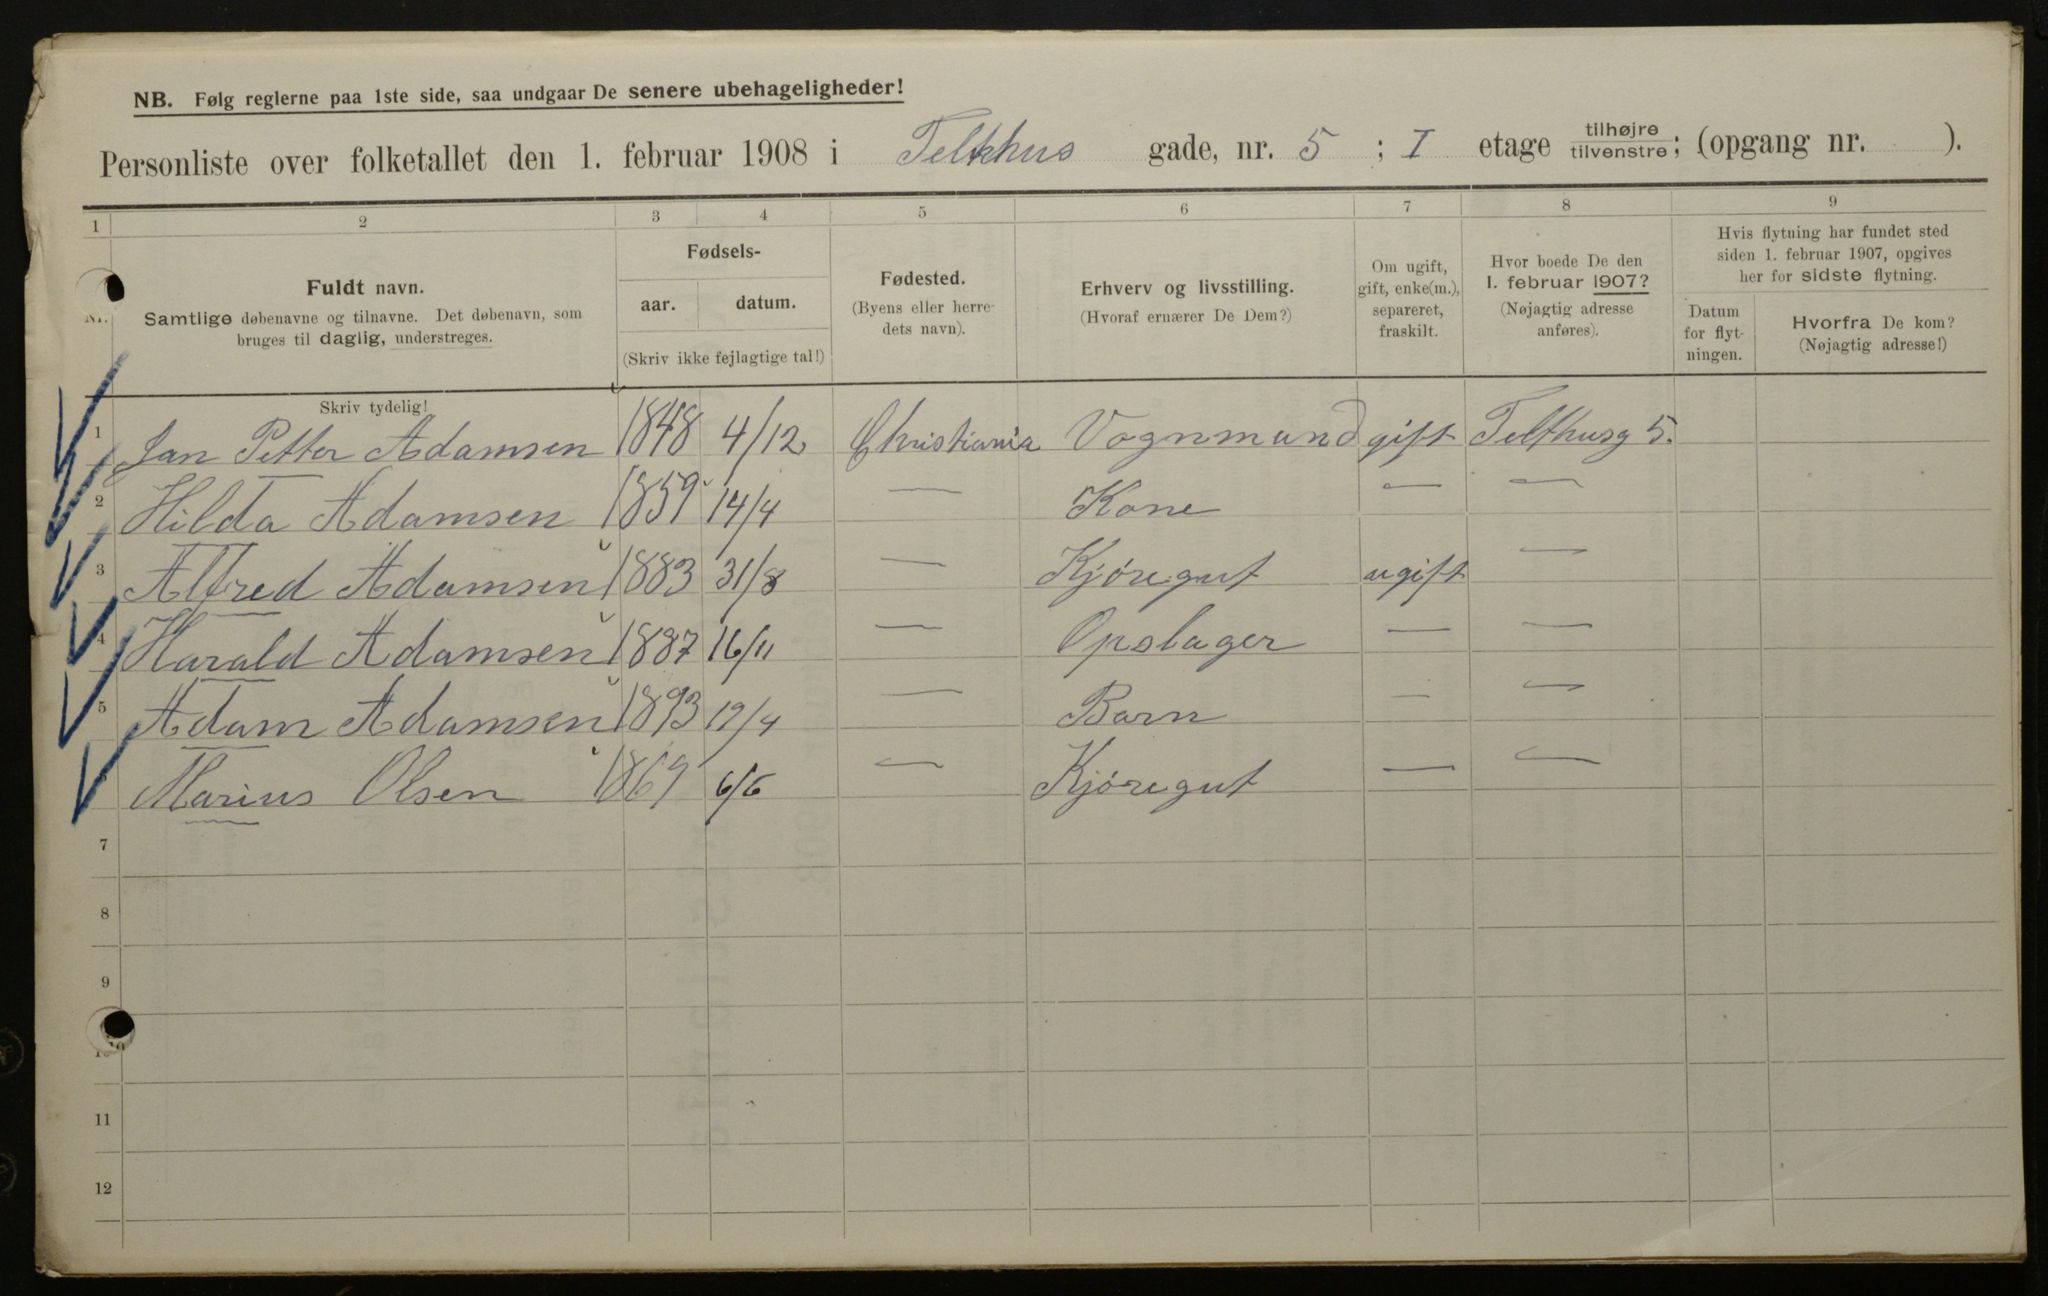 NB. Følg reglerne paa 1ste side, saa undgaar De senere ubehageligheder!
Personliste over folketallet den 1. februar 1908 i Telthus gade, nr. 5 ; I etage tilhøjre tilvenstre; (opgang nr. ).
1 2 3 4 5 6 7 8 9
Nr.
Fuldt navn.
Samtlige døbenavne og tilnavne. Det døbenavn, som
bruges til daglig, understreges.
Skriv tydelig!
Fødsels-
aar. datum.
(Skriv ikke fejlagtige tal!)
Fødested.
(Byens eller herre-
dets navn).
Erhverv og livsstilling.
(Hvoraf ernærer De Dem?)
Om ugift,
gift, enke(m.),
separeret,
fraskilt.
Hvor boede De den
1. februar 1907?
(Nøjagtig adresse
anføres).
Hvis flytning har fundet sted
siden 1. februar 1907, opgives
her for sidste flytning.
Datum
for flyt-
ningen.
Hvorfra De kom?
(Nøjagtig adresse!)
1 Jan Petter Adamsen 1848 4/12 Christiania Vognmand gift Telthusg 5.
2 Hilda Adamsen 1859 14/4 — Kone — —
3 Alfred Adamsen 1883 31/8 — Kjøregut ugift —
4 Harald Adamsen 1887 16/11 — Opslager — —
5 Adam Adamsen 1893 19/4 — Barn — —
Marius Olsen 1869 6/6 — Kjøregut — —
7
8
9
10
11
12